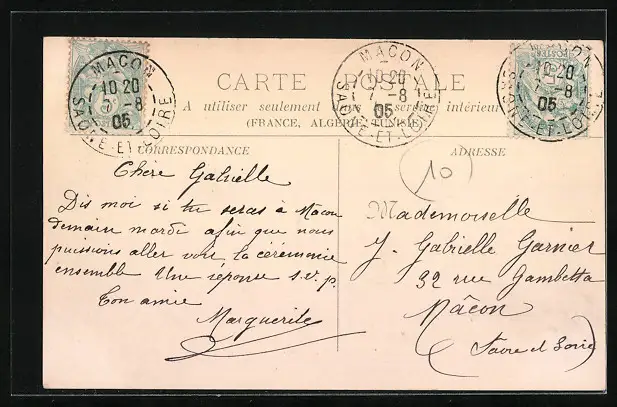 CARTE POSTALE
A utiliser seulement dans le service intérieur
(FRANCE, ALGÉRIE, TUNISIE)
CORRESPONDANCE
Chère Gabrielle
Dis moi si tu seras à Macon
demain mardi afin que nous
puissions aller voir la cérémonie
ensemble Une réponse s.v.p.
Ton amie
Marguerite
ADRESSE
10
Mademoiselle
J. Gabrielle Garnier
32 rue Gambetta
Mâcon
(Saône et Loire)
MACON
10 20
7 - 8
05
SAONE-ET-LOIRE
MACON
10 20
7 - 8
05
SAONE-ET-LOIRE
MACON
10 20
7 - 8
05
SAONE-ET-LOIRE